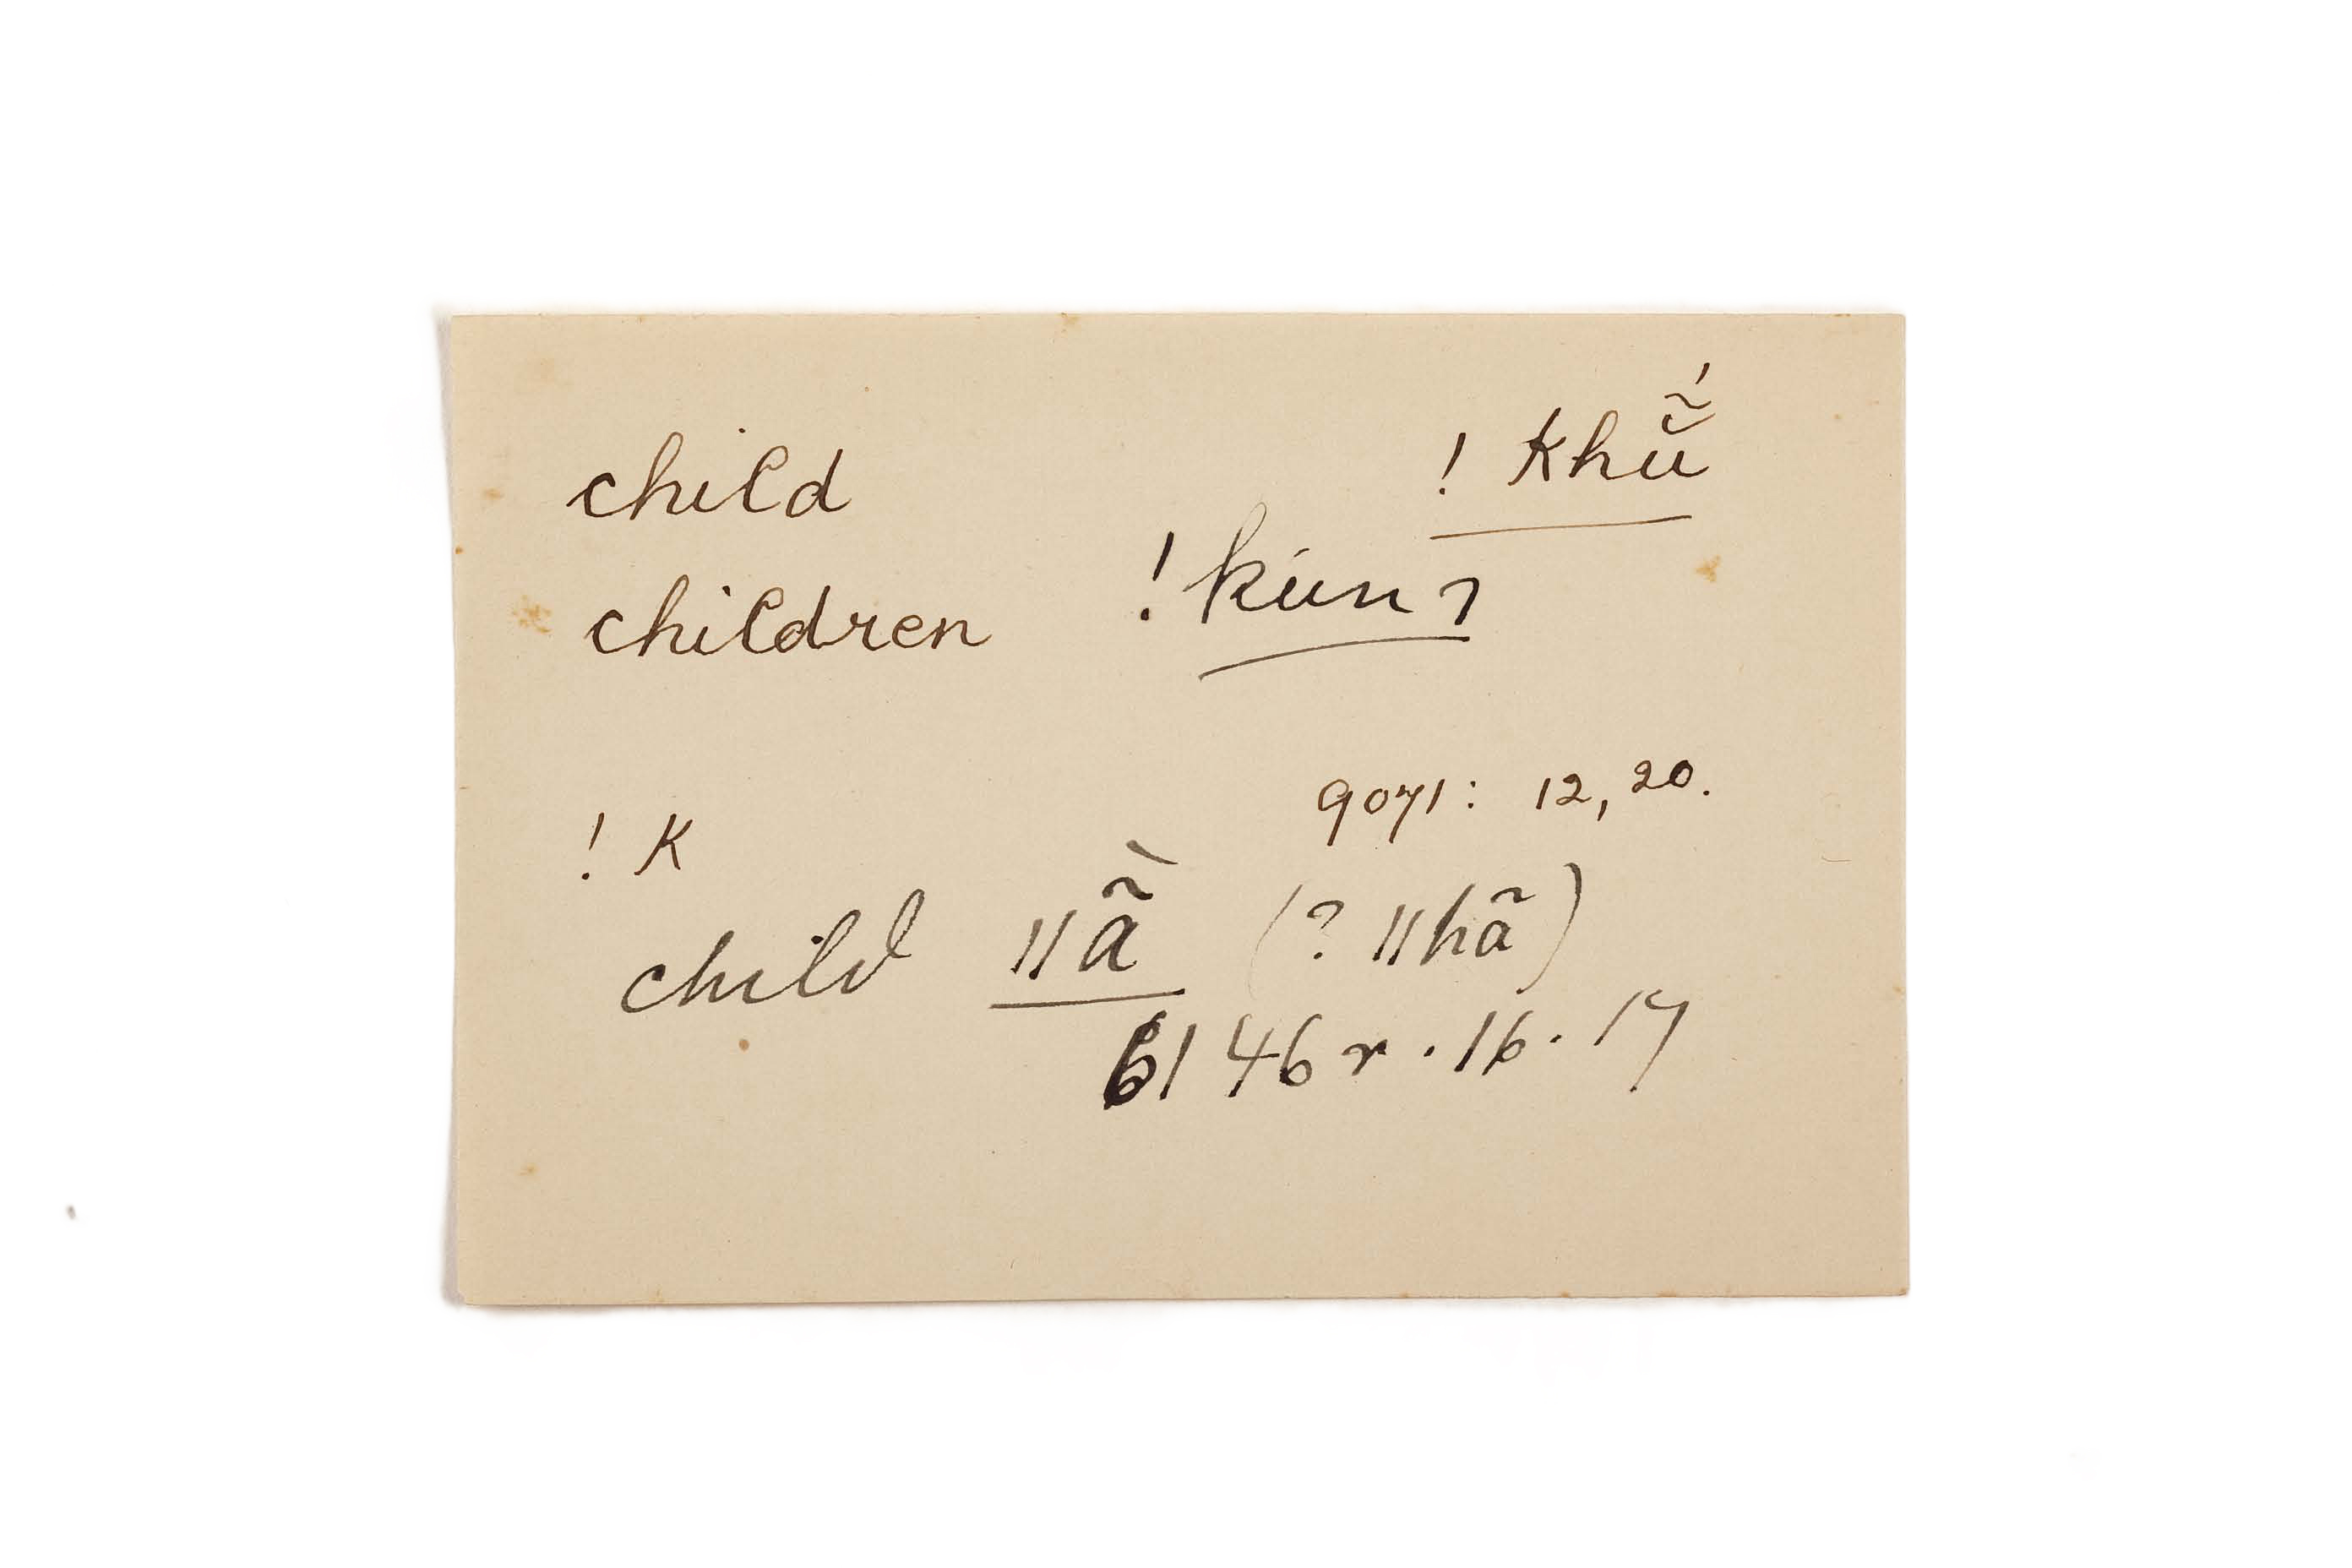 child ! khṵ̆̃́
children ! kún ɿ
9071: 12, 20.
! K
child ǁã̀ (? ǁhã)
6146 r. 16. 17